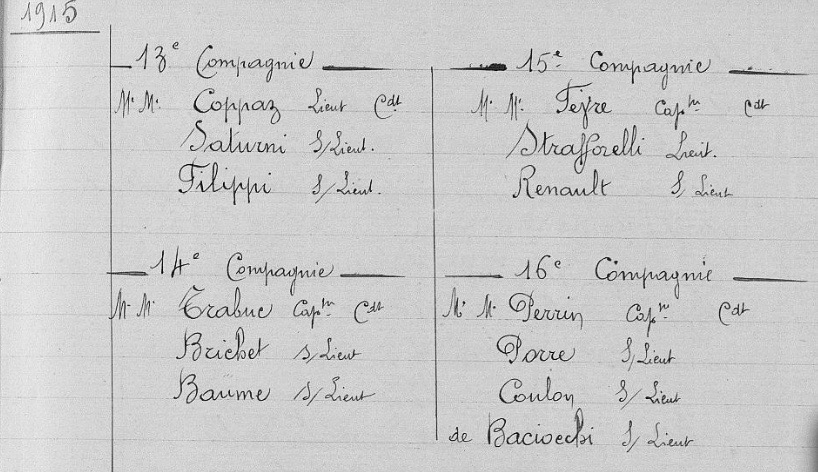 1915
13e Compagnie
M.M. Coppaz Lieut Cdt
Saturni S/Lieut.
Filippi S/Lieut.
14e Compagnie
M.M. Trabuc Capne Cdt
Brichet S/Lieut
Baume S/Lieut
15e Compagnie
M.M. Capne Cdt
Strafforelli Lieut.
Renault S/Lieut
16e Compagnie
M.M. Perrin Capne Cdt
Porre S/Lieut
Coulon S/Lieut
de Bacioechi S/Lieut